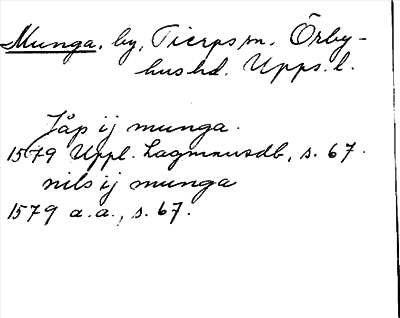 Munga, by, Tierps sn. Örby-
hus hd. Upps. l.
Jåp ij munga.
1579 Uppl. Lagmansdb, s. 67.
nils ij munga
1579 a.a., s. 67.